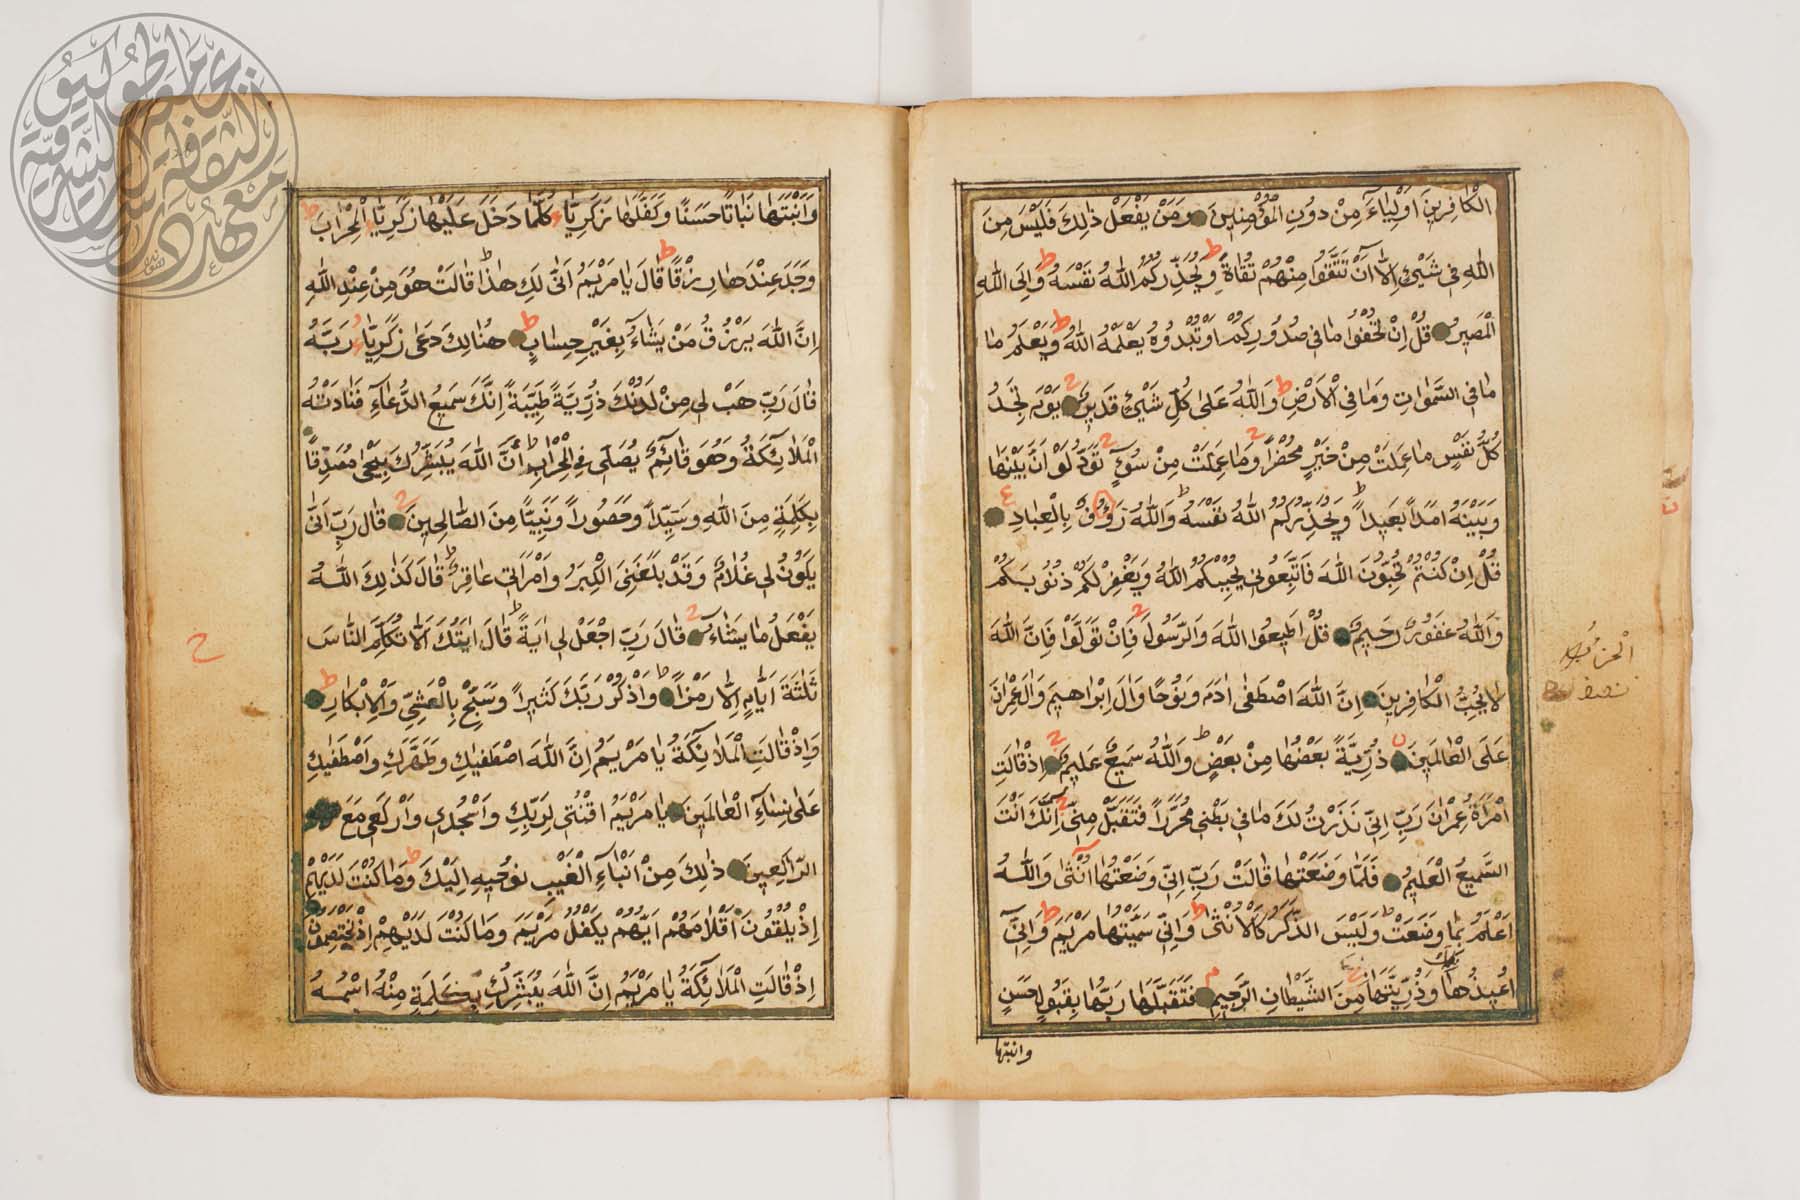 الْكَافِرِينَ اَوْلِيَاءَ مِنْ دُونِ الْمُؤْمِنِينَ وَمَنْ يَفْعَلْ ذٰلِكَ فَلَيْسَ مِنَ
اللّٰهِ فِي شَيْءٍ اِلَّا اَنْ تَتَّقُوا مِنْهُمْ تُقَاةً وَيُحَذِّرُكُمُ اللّٰهُ نَفْسَهُ وَاِلَى اللّٰهِ
الْمَصِيرُ قُلْ اِنْ تُخْفُوا مَا فِي صُدُورِكُمْ اَوْ تُبْدُوهُ يَعْلَمْهُ اللّٰهُ وَيَعْلَمُ مَا
مَا فِي السَّمٰوَاتِ وَمَا فِي الْاَرْضِ وَاللّٰهُ عَلٰى كُلِّ شَيْءٍ قَدِيرٌ يَوْمَ تَجِدُ
كُلُّ نَفْسٍ مَا عَمِلَتْ مِنْ خَيْرٍ مُحْضَرًا وَمَا عَمِلَتْ مِنْ سُوءٍ تَوَدُّ لَوْ اَنَّ بَيْنَهَا
وَبَيْنَهُ اَمَدًا بَعِيدًا وَيُحَذِّرُكُمُ اللّٰهُ نَفْسَهُ وَاللّٰهُ رَؤُفٌ بِالْعِبَادِ
قُلْ اِنْ كُنْتُمْ تُحِبُّونَ اللّٰهَ فَاتَّبِعُونِي يُحْبِبْكُمُ اللّٰهُ وَيَغْفِرْ لَكُمْ ذُنُوبَكُمْ
وَاللّٰهُ غَفُورٌ رَحِيمٌ قُلْ اَطِيعُوا اللّٰهَ وَالرَّسُولَ فَاِنْ تَوَلَّوْا فَاِنَّ اللّٰهَ
لَا يُحِبُّ الْكَافِرِينَ اِنَّ اللّٰهَ اصْطَفٰى اٰدَمَ وَنُوحًا وَاٰلَ اِبْرَاهِيمَ وَاٰلَ عِمْرَانَ
عَلَى الْعَالَمِينَ ذُرِّيَّةً بَعْضُهَا مِنْ بَعْضٍ وَاللّٰهُ سَمِيعٌ عَلِيمٌ اِذْ قَالَتِ
امْرَاَةُ عِمْرَانَ رَبِّ اِنِّي نَذَرْتُ لَكَ مَا فِي بَطْنِي مُحَرَّرًا فَتَقَبَّلْ مِنِّي اِنَّكَ اَنْتَ
السَّمِيعُ الْعَلِيمُ فَلَمَّا وَضَعَتْهَا قَالَتْ رَبِّ اِنِّي وَضَعْتُهَا اُنْثٰى وَاللّٰهُ
اَعْلَمُ بِمَا وَضَعَتْ وَلَيْسَ الذَّكَرُ كَالْاُنْثٰى وَاِنِّي سَمَّيْتُهَا مَرْيَمَ وَاِنِّي
اُعِيذُهَا بِكَ وَذُرِّيَّتَهَا مِنَ الشَّيْطَانِ الرَّجِيمِ فَتَقَبَّلَهَا رَبُّهَا بِقَبُولٍ حَسَنٍ
وانبتها
وَاَنْبَتَهَا نَبَاتًا حَسَنًا وَكَفَّلَهَا زَكَرِيَّاءَ كُلَّمَا دَخَلَ عَلَيْهَا زَكَرِيَّاءُ الْمِحْرَابَ
وَجَدَ عِنْدَهَا رِزْقًا قَالَ يَا مَرْيَمُ اَنّٰى لَكِ هٰذَا قَالَتْ هُوَ مِنْ عِنْدِ اللّٰهِ
اِنَّ اللّٰهَ يَرْزُقُ مَنْ يَشَاءُ بِغَيْرِ حِسَابٍ هُنَالِكَ دَعٰى زَكَرِيَّاءُ رَبَّهُ
قَالَ رَبِّ هَبْ لِي مِنْ لَدُنْكَ ذُرِّيَّةً طَيِّبَةً اِنَّكَ سَمِيعُ الدُّعَاءِ فَنَادَتْهُ
الْمَلَائِكَةُ وَهُوَ قَائِمٌ يُصَلِّي فِي الْمِحْرَابِ اَنَّ اللّٰهَ يُبَشِّرُكَ بِيَحْيٰى مُصَدِّقًا
بِكَلِمَةٍ مِنَ اللّٰهِ وَسَيِّدًا وَحَصُورًا وَنَبِيًّا مِنَ الصَّالِحِينَ قَالَ رَبِّ اَنّٰى
يَكُونُ لِي غُلَامٌ وَقَدْ بَلَغَنِيَ الْكِبَرُ وَامْرَاَتِي عَاقِرٌ قَالَ كَذٰلِكَ اللّٰهُ
يَفْعَلُ مَا يَشَاءُ قَالَ رَبِّ اجْعَلْ لِي اٰيَةً قَالَ اٰيَتُكَ اَلَّا تُكَلِّمَ النَّاسَ
ثَلٰثَةَ اَيَّامٍ اِلَّا رَمْزًا وَاذْكُرْ رَبَّكَ كَثِيرًا وَسَبِّحْ بِالْعَشِيِّ وَالْاِبْكَارِ
وَاِذْ قَالَتِ الْمَلَائِكَةُ يَا مَرْيَمُ اِنَّ اللّٰهَ اصْطَفٰيكِ وَطَهَّرَكِ وَاصْطَفٰيكِ
عَلٰى نِسَاءِ الْعَالَمِينَ يَا مَرْيَمُ اقْنُتِي لِرَبِّكِ وَاسْجُدِي وَارْكَعِي مَعَ
الرَّاكِعِينَ ذٰلِكَ مِنْ اَنْبَاءِ الْغَيْبِ نُوحِيهِ اِلَيْكَ وَمَا كُنْتَ لَدَيْهِمْ
اِذْ يُلْقُونَ اَقْلَامَهُمْ اَيُّهُمْ يَكْفُلُ مَرْيَمَ وَمَا كُنْتَ لَدَيْهِمْ اِذْ يَخْتَصِمُونَ
اِذْ قَالَتِ الْمَلَائِكَةُ يَا مَرْيَمُ اِنَّ اللّٰهَ يُبَشِّرُكِ بِكَلِمَةٍ مِنْهُ اسْمُهُ